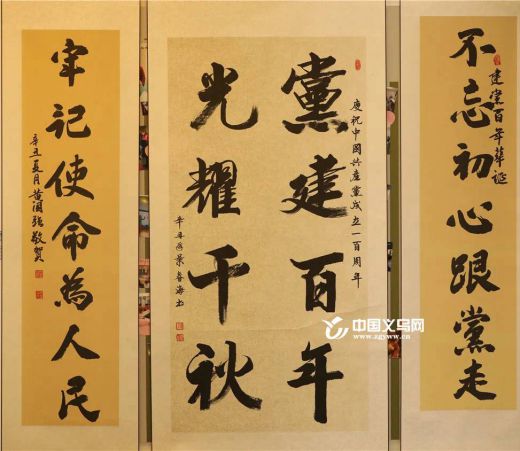 不忘初心跟黨走
建党百年華誕
慶祝中國共產黨成立一百周年
黨建百年
光耀千秋
牢記使命為人民
辛丑夏月黄国强敬賀
中国义乌网
www.zgyww.cn